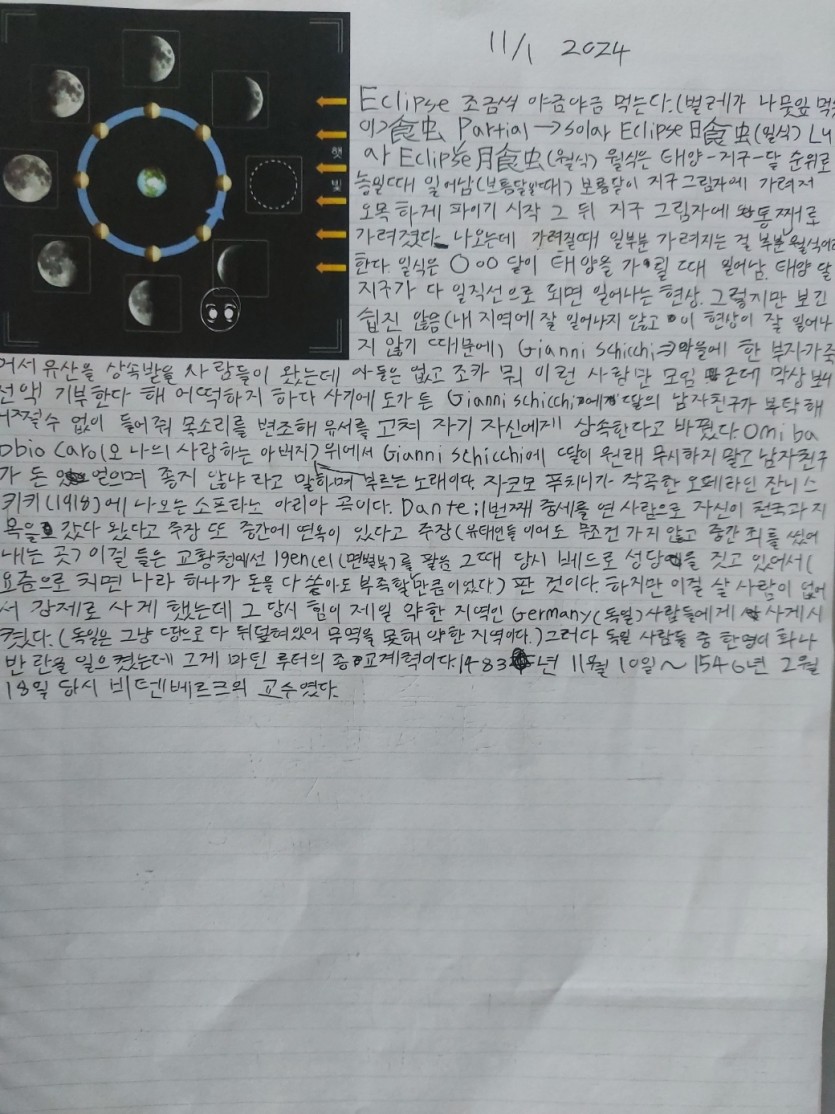 11/1 2024
햇
빛
Eclipse 조금씩 야금야금 먹는다.(벌레가 나뭇잎 먹
이) 食虫 Partial → Solar Eclipse 月食虫(일식) Lu
ar Eclipse 月食虫(월식) 월식은 태양-지구-달 순위로
놓일때 일어남(보름달일때) 보름달이 지구그림자에 가려져
오목하게 파이기 시작 그 뒤 지구 그림자에 통째로
가려졌다. 나오는데 가려질때 일부분 가려지는 걸 부분월식이라
한다. 일식은 ○○○ 달이 태양을 가릴 때 일어남. 태양 달
지구가 다 일직선으로 되면 일어나는 현상. 그렇지만 보긴
쉽진 않음(내 지역에 잘 일어나지 않고 이 현상이 잘 일어나
지 않기 때문에) Gianni Schicchi⇒마을에 한 부자가 죽
어서 유산을 상속받을 사람들이 왔는데 아들은 없고 조카 뭐 이런 사람만 모임 근데 막상
전액 기부한다 해 어떡하지 하다 사기에 도가 든 Gianni schicchi에게 딸의 남자친구가 부탁해
어쩔수 없이 들어줘 목소리를 변조해 유서를 고쳐 자기 자신에게 상속한다고 바꿨다. O mi ba
obio caro(오 나의 사랑하는 아버지) 위에서 Gianni schicchi에 딸이 원래 무시하지 말고 남자친구
가 돈 얻으며 좋지 않냐 라고 말하며 부르는 노래이다. 자코모 푸치니가 작곡한 오페라인 잔니 스
키키(1918)에 나오는 소프라노 아리아 곡이다. Dante; 1번째 중세를 연 사람으로 자신이 천국과 지
옥을 갔다 왔다고 주장 또 중간에 연옥이 있다고 주장(유태인들 이어도 무조건 가지 않고 중간 죄를 씻어
내는 곳) 이걸 들은 교황청에선 Igencel(면벌부)를 팔음 그때 당시 베드로 성당을 짓고 있어서(
요즘으로 치면 나라 하나가 돈을 다 쏟아도 부족할만큼이었다) 판 것이다. 하지만 이걸 살 사람이 없어
서 강제로 사게 했는데 그 당시 힘이 제일 약한 지역인 Germany(독일)사람들에게 사게시
켰다.(독일은 그냥 땅으로 다 뒤덮혀있어 무역을 못해 약한 지역이다.) 그러다 독일 사람들 중 한명이 화나
반란을 일으켰는데 그게 마틴 루터의 종교계혁이다. 1483년 11월 10일~1546년 2월
18일 당시 비텐베르크의 교수였다.